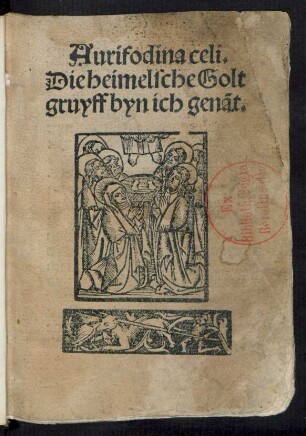 Aurifodina celi.
Die heimelsche Golt
gruyff byn ich genāt.
Ex